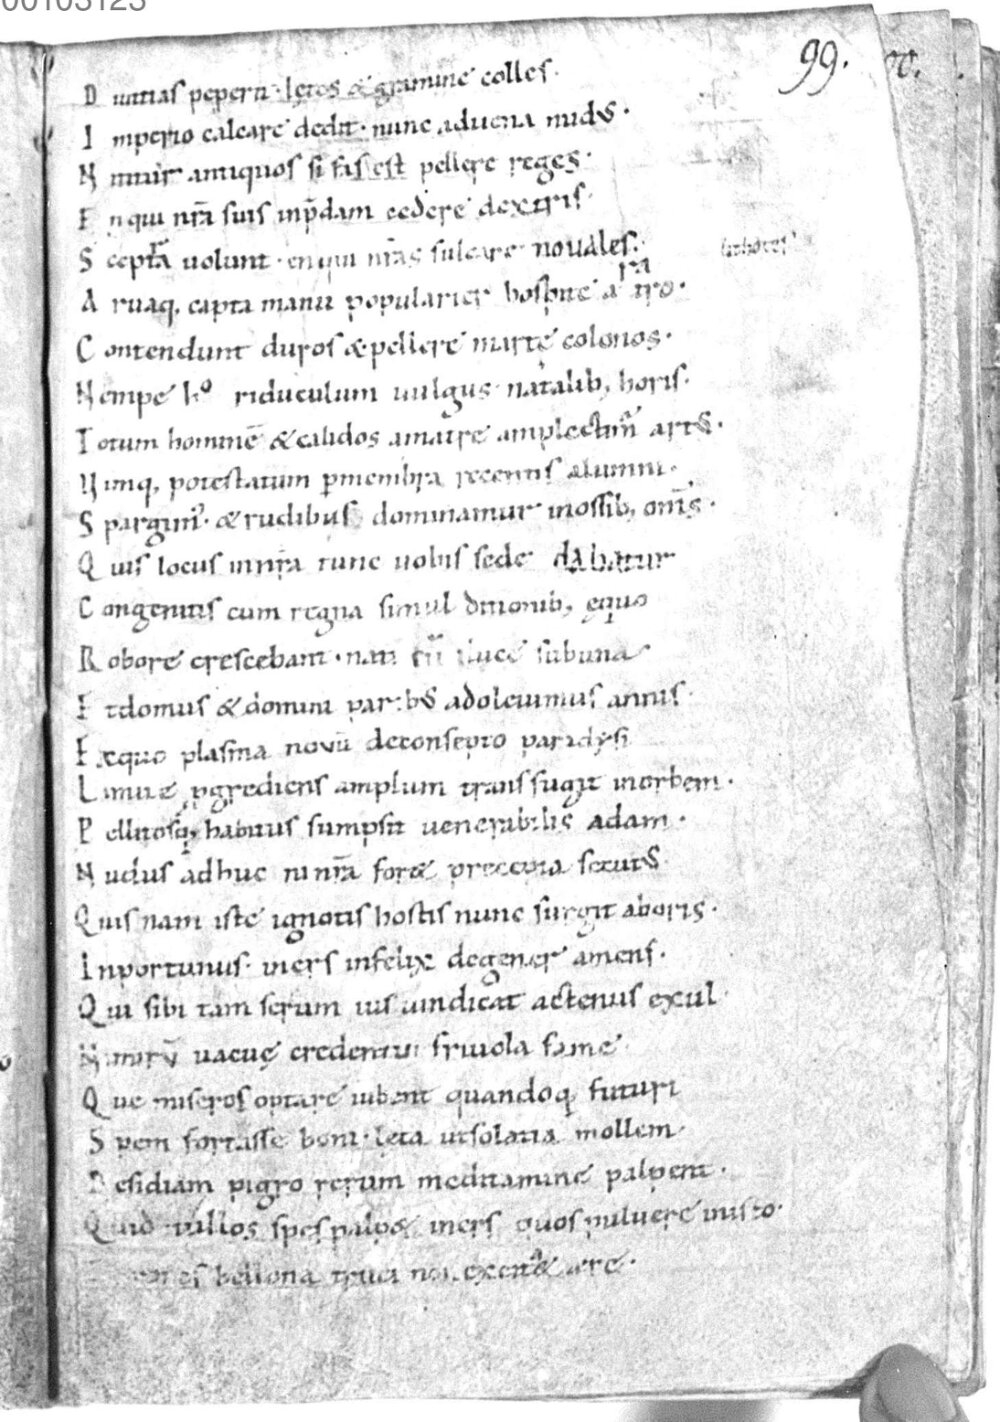 00103123
99.
D iuitias peperit · letos & gramine colles ·
I mperio calcare dedit · nunc aduena nudus ·
N ititur antiquos si fas est pellere reges ·
E n qui nr̄a suis inp̄dam cedere dextris ·
S ceptra uolunt · en qui nr̄as sulcare nouales ·
A ruaq, capta manu popularier hospite aratro ·
C ontendunt duros & pellere marte colonos ·
N empe hº ridiculum uulgus natalib, horis ·
T otum hominē & calidos a matre amplectimur artus ·
U imq, potestatum p membra recentis alumni ·
S pargim' · & rudibus dominamur in ossib, om̄s ·
Q uis locus in nr̄a tunc uobis sede dabatur
C ongenitis cum regna simul ditionib, equo
R obore crescebant · nati cū luce sub una
E t domus & domini paribus adoleuimus annis ·
E x quo plasma nouū de consepto paradysi
L imite pgrediens amplum transfugit in orbem ·
P ellitosq, habitus sumpsit uenerabilis adam ·
N udus adhuc ni nr̄a for& precepta secutus
Q uis nam iste ignotis hostis nunc surgit ab oris ·
I nportunus · iners infelix degener amens ·
Q ui sibi tam serum ius uindicat actenus exul
N imirū uacue credentur friuola fame
Q ue miseros optare iubent quandoq, futuri
S pem fortasse boni · leta ut solatia mollem ·
D esidiam pigro rerum meditamine palpent ·
Q uid illos spes palp& iners quos puluere in isto ·
bellona truci non excit& ere ·